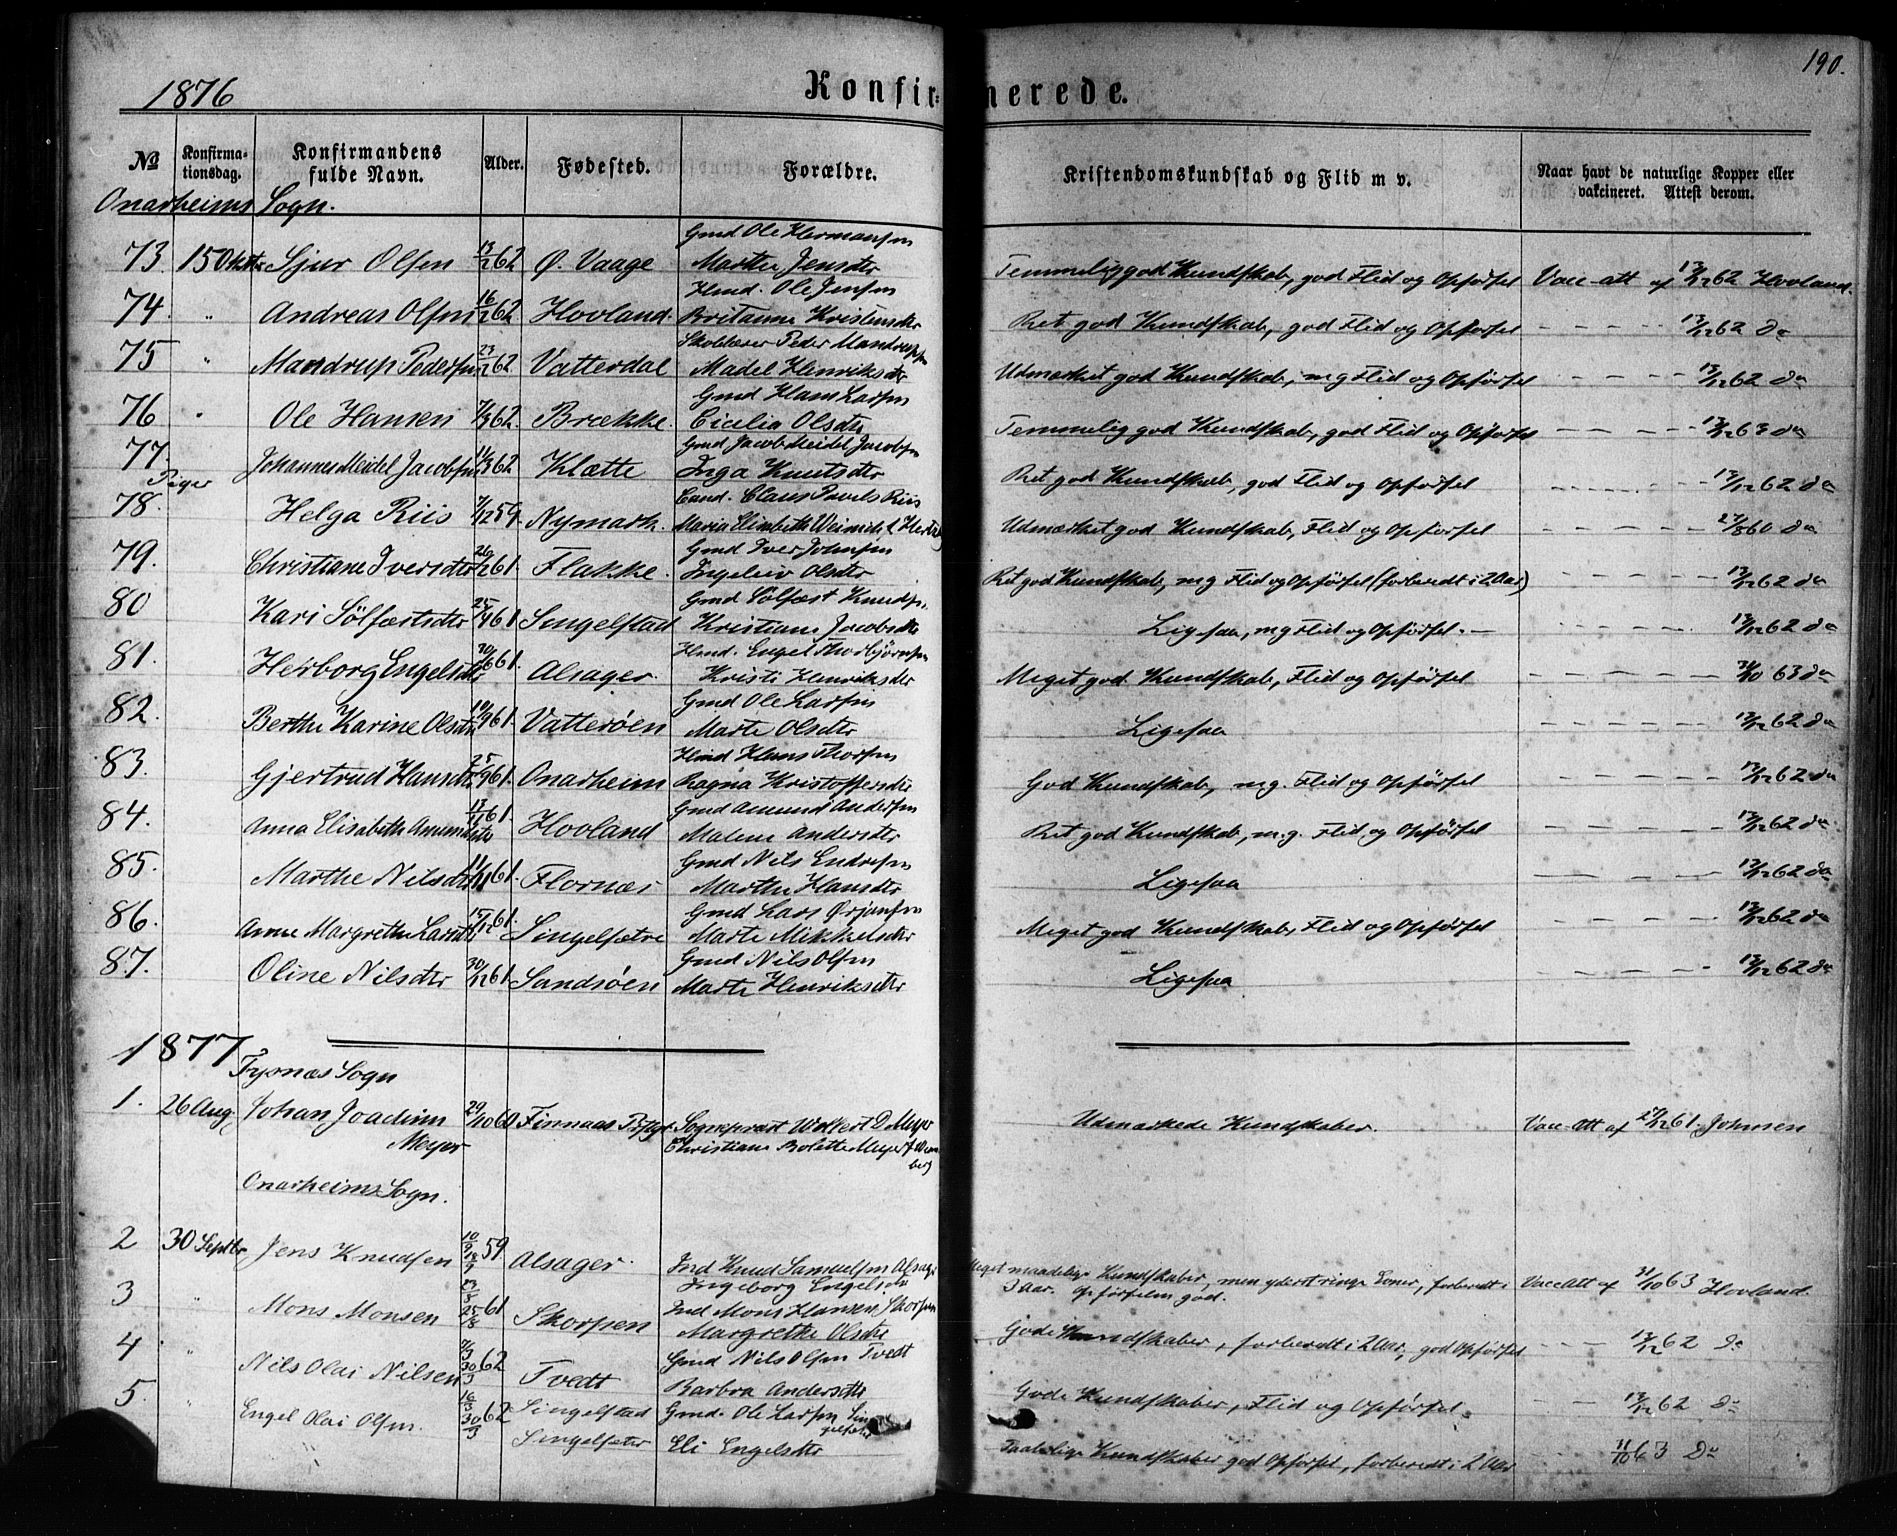 190.
1876 Konfirmerede.
No Konfirmationsdag. Konfirmandens fulde Navn. Alder. Fødested. Forældre. Kristendomskundskab og Flid m v. Naar havt de naturlige Kopper eller vakcineret. Attest derom.
Onarheims Sogn.
Gmd Ole Hermansen
73. 15 Oktbr Sjur Olsen 13/2 62 Ø. Vaage Marthe Jensdtr Temmelig god Kundskab, god Flid og Opførsel Vacc. att af 13/12 62 Hovland.
Hmd. Ole Jensen
74. " Andreas Olsen 16/2 62 Hovland Britanne Kristensdtr Ret god Kundskab, god Flid og Opførsel 13/12 62 do
Skolelærer Peder Mandrupsen
75 " Mandrup Pedersen 23/2 62 Vatterdal Madel Henriksdtr Udmærket god Kundskab, mg Flid og Opførsel 13/12 62 do
Gmd Hans Larsen
76 " Ole Hansen 7/3 62. Brække. Cicilia Olsdtr Temmelig god Kundskab, god Flid og Opførsel 13/12 63 do
Gmd Jacob Meidel Jacobsen
77. Johannes Meidel Jacobsen 11/3 62 Klætte Inga Knutsdtr Ret god Kundskab, god Flid og Opførsel 13/12 62 do
Piger
Cand. Claus Pavels Riis
78. Helga Riis 7/12 59. Nymark. Maria Elisabeth Weinich f. Hertzig Udmærket god Kundskab, Flid og Opførsel 27/8 60 do
Gmd Iver Johnsen
79. Christiane Iversdtr 26/2 61. Flakke. Ingeleiv Olsdtr Ret god Kundskab, mg Flid og Opførsel (forberedt i 2 Aar) 13/12 62 do
Gmd Sølfæst Knudsen
80 Kari Sølfæstsdtr 25/4 61 Singelstad Kristiane Jacobsdtr Ligesaa, mg Flid og Opførsel. 13/12 62 do
Hmd. Engel Thorbjørnsen
81. Herborg Engelsdtr 30/6 61. Alsager. Kristi Henriksdtr Meget god Kundskab, Flid og Opførsel 31/10 63 do
Gmd Ole Larsen
82. Berthe Karine Olsdtr 10/9 61. Vatterøen Marte Olsdtr Ligesaa 13/12 62 do
Hmd Hans Thorsen
83. Gjertrud Hansdtr 25/9 61. Onarheim Ragna Kristoffersdtr God Kundskab, mg. Flid og Opførsel 13/12 62 do
Gmd Amund Andersen
84. Anna Elisabeth Amundsdtr 13/11 61 Hovland Malene Andersdtr Ret god Kundskab, m.g. Flid og Opførsel 13/12 62 do
Gmd Nils Endresen
85. Marthe Nilsdtr 11/11 61. Flornæs Marthe Hansdtr Ligesaa 13/12 62 do
Gmd Lars Ørjansen
86. Anne Margrethe Larsdtr 15/12 61. Singelsætre Marte Mikkelsdtr Meget god Kundskab, Flid og Opførsel 13/12 62 do
Gmd Nils Olsen
87. Oline Nilsdtr 30/12 61 Sandsøen Marte Henriksdtr Ligesaa 13/12 62 do
1877
Tysnæs Sogn
1. 26 Aug. Johan Joachim 29/10 60 Finnaas Prstgj. Sogneprest Wollert D Meyer Udmærkede Kundskaber. Vacc. Att af 27/12 61. Johnsen
Meyer Christiane Bolette Meyer f.
Onarheims Sogn.
2 30 Septbr Jens Knudsen 10/9 59. Alsager. Ind Knud Samuelsen Alsager Meget maadelige Kundskaber, men yderst ringe Evner, forberedt i Vacc Att af 31/10 63 Hovland.
Ingeborg Engelsdtr 3 Aar. Opførselen god.
3 " Mons Monsen 23/8 25/8 61 Skorpen Ind Mons Hansen Skorpen
Margrethe Olsdtr Gode Kundskaber, forberedt i 2 Aar, god Opførsel 13/12 62 do
4 " Nils Olai Nilsen 7/3 30/3 62 Tvedt Gmd Nils Olsen Tvedt
Barbra Andersdtr Gode Kundskaber, Flid og Opførsel. 13/12 62 do
5. " Engel Olai Olsen. 16/3 30/3 62 Singelstad Gmd. Ole Larsen
Singelsæter Eli Engelsdtr Taalelige Kundskaber god Opførsel, forberedt i 2 Aar 31/10 63 do